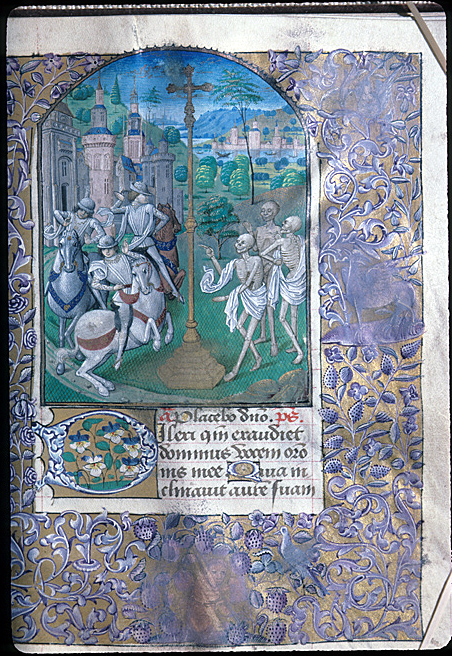 A Placebo dn̄o. ps.
Dilexi qm̄ exaudiet
dominus vocem orō
nis mee Quia in
clinauit aurē suam